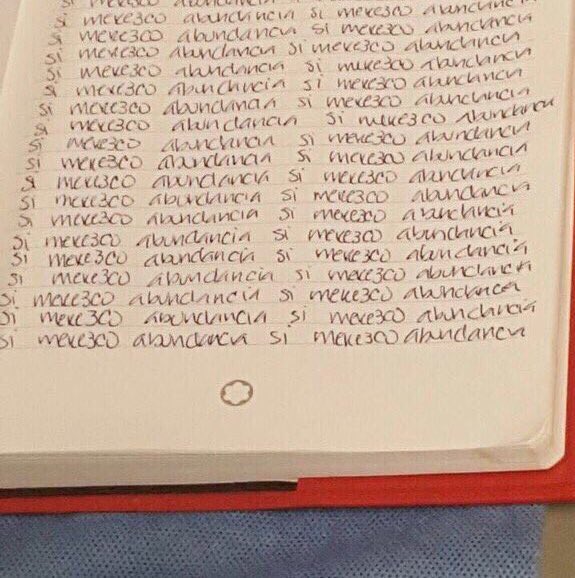 si merezco abundancia
si merezco abundancia si merezco abundancia
si merezco abundancia si merezco abundancia
si merezco abundancia si merezco abundancia
si merezco abundancia si merezco abundancia
si merezco abundancia si merezco abundancia
si merezco abundancia si merezco abundancia
si merezco abundancia si merezco abundancia
si merezco abundancia si merezco abundancia
si merezco abundancia si merezco abundancia
si merezco abundancia si merezco abundancia
si merezco abundancia si merezco abundancia
si merezco abundancia si merezco abundancia
si merezco abundancia si merezco abundancia
si merezco abundancia si merezco abundancia
si merezco abundancia si merezco abundancia
si merezco abundancia si merezco abundancia
si merezco abundancia si merezco abundancia
si merezco abundancia si merezco abundancia